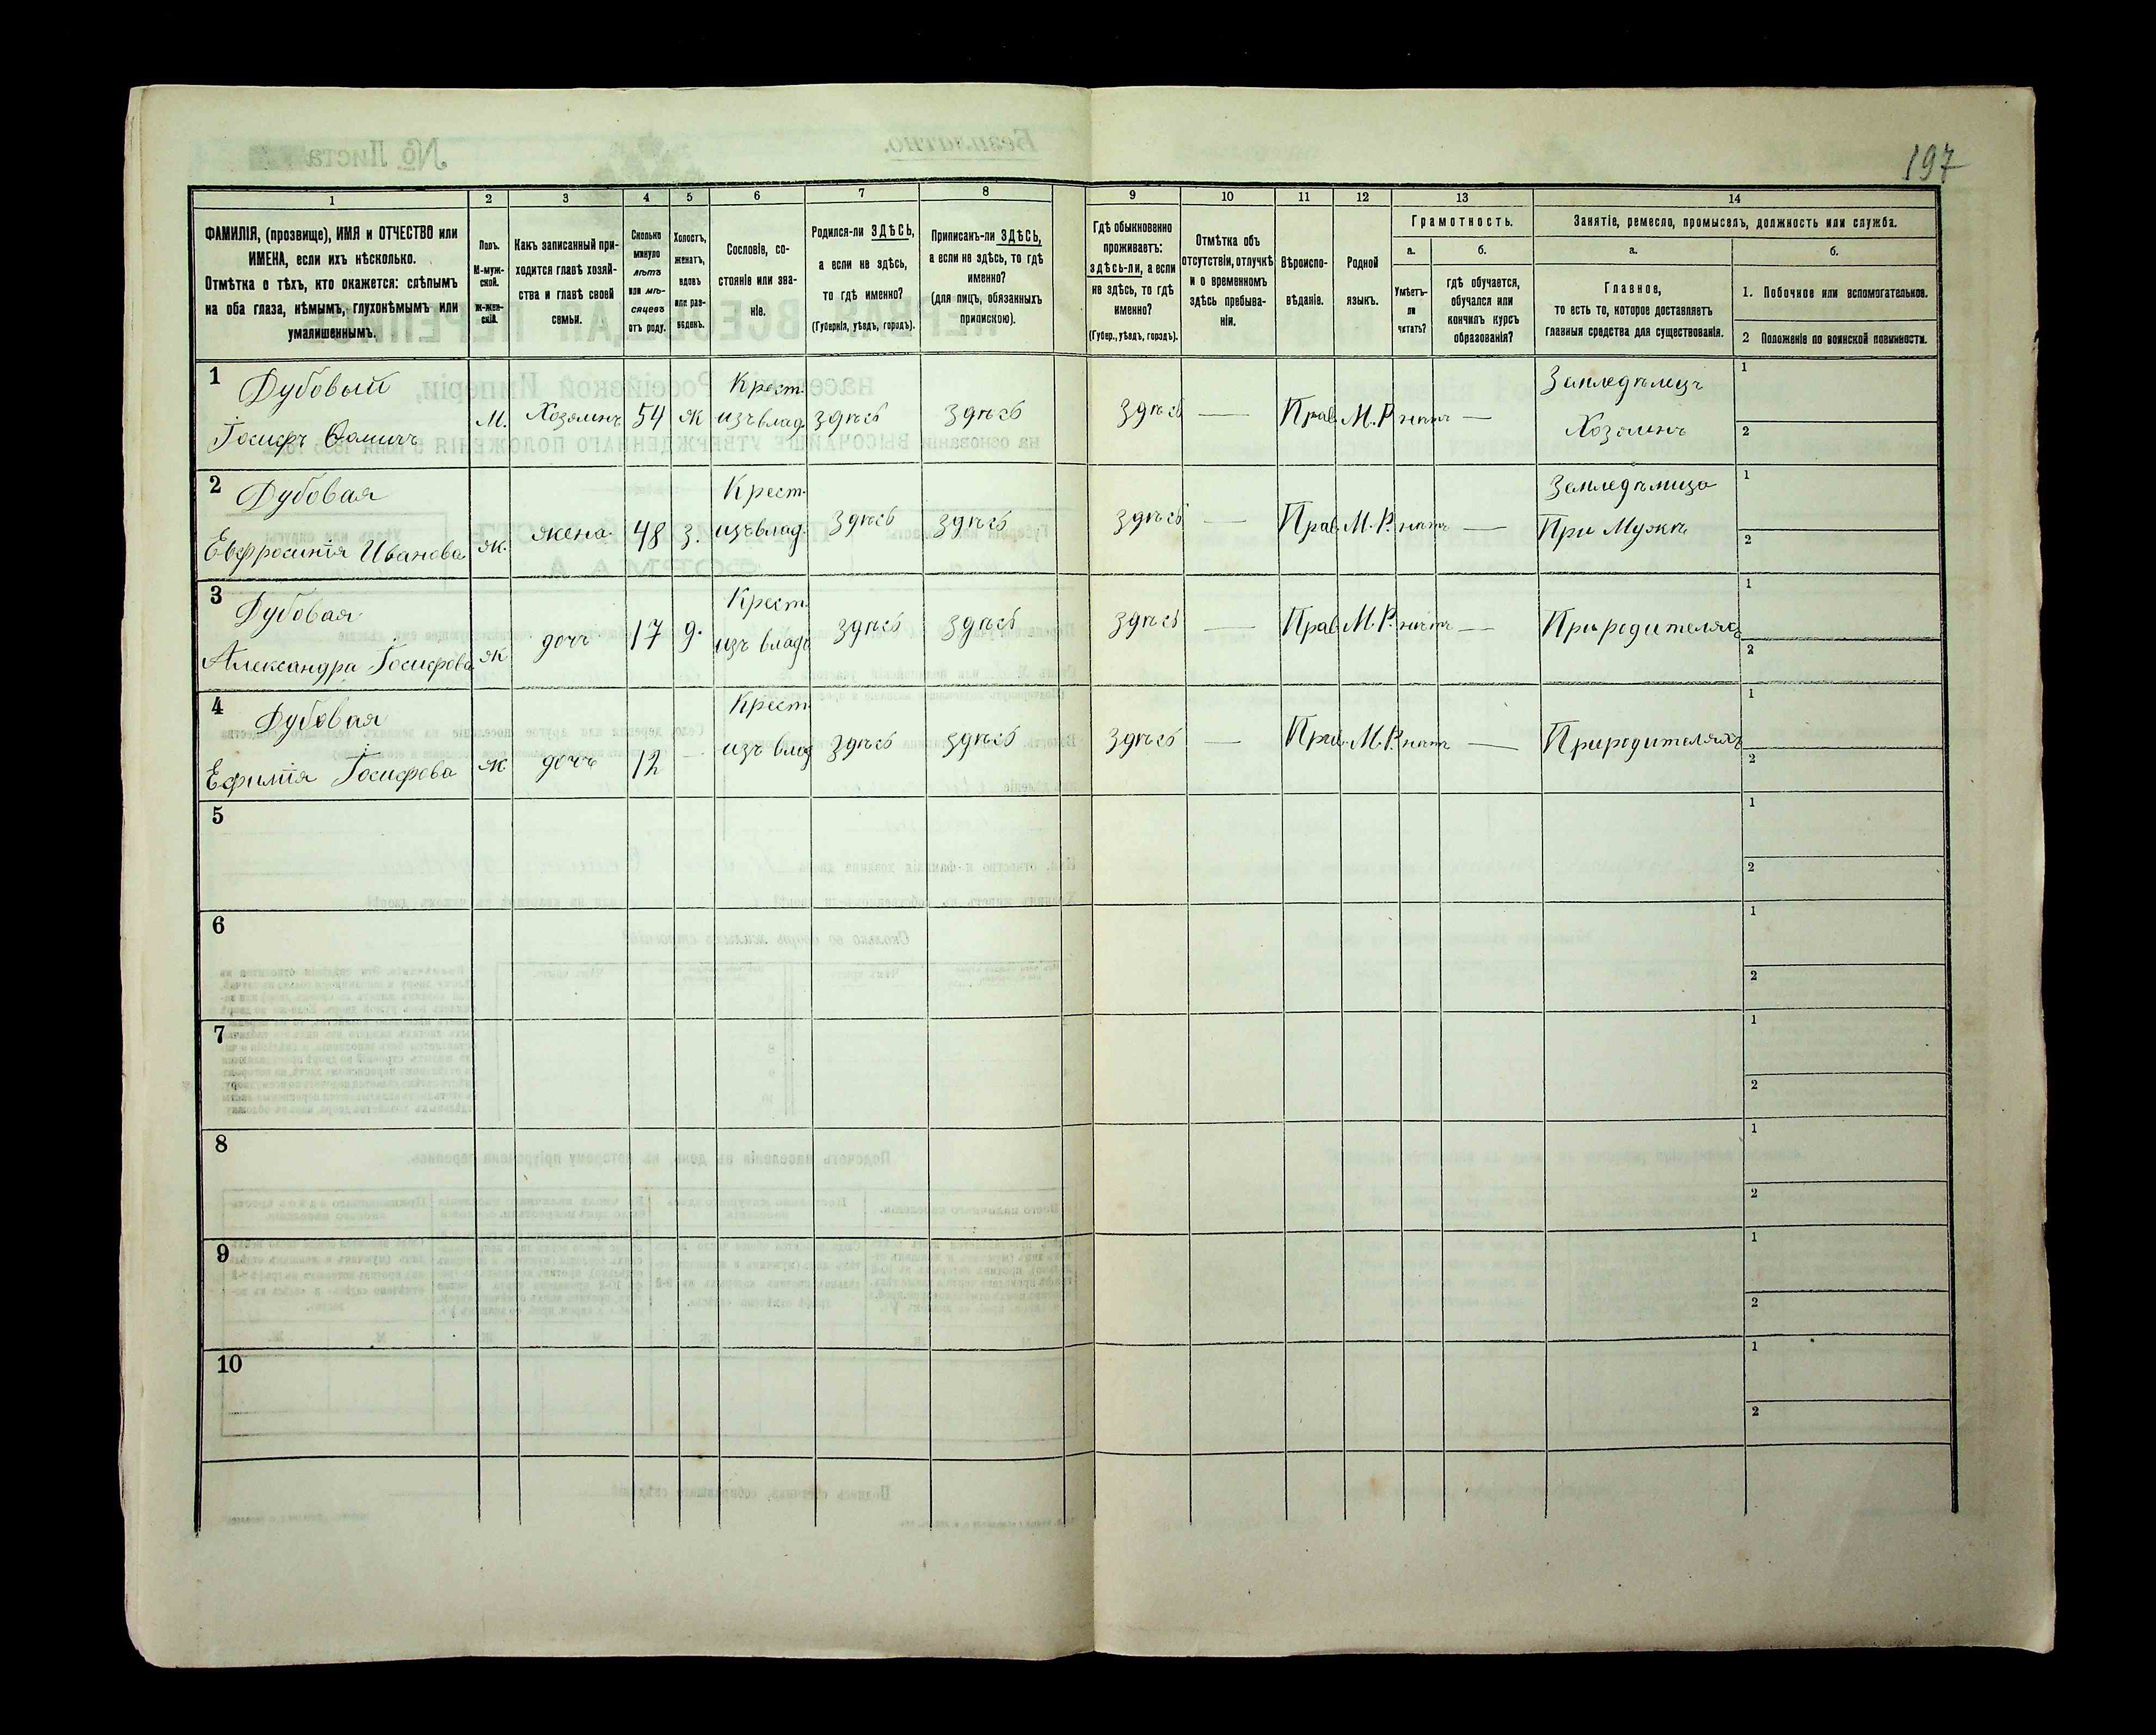 197
1
2
3
4
5
6
7
8
9
10
11
12
13
14
ФАМИЛІЯ, (прозвище), ИМЯ и ОТЧЕСТВО или
ИМЕНА, если ихъ нѣсколько.
Отмѣтка о тѣхъ, кто окажется: слѣпымъ
на оба глаза, нѣмымъ, глухонѣмымъ или
умалишеннымъ.
Полъ.
М-муж-
ской.
ж-жен-
скій.
Какъ записанный при-
ходится главѣ хозяй-
ства и главѣ своей
семьи.
Сколько
минуло
лѣтъ
или мѣ-
сяцевъ
отъ роду.
Холостъ,
женатъ,
вдовъ
или раз-
веденъ.
Сословіе, со-
стояніе или зва-
ніе.
Родился-ли ЗДѢСЬ,
а если не здѣсь,
то гдѣ именно?
(Губернія, уѣздъ, городъ).
Приписанъ-ли ЗДѢСЬ,
а если не здѣсь, то гдѣ
именно?
(для лицъ, обязанныхъ
припискою).
Гдѣ обыкновенно
проживаетъ:
здѣсь-ли, а если
не здѣсь, то гдѣ
именно?
(Губер., уѣздъ, городъ).
Отмѣтка объ
отсутствіи, отлучкѣ
и о временномъ
здѣсь пребыва-
ніи.
Вѣроиспо-
вѣданіе.
Родной
языкъ.
Грамотность.
а.
Умѣетъ-
ли
читать?
б.
гдѣ обучается,
обучался или
кончилъ курсъ
образованія?
Занятіе, ремесло, промыселъ, должность или служба.
а.
Главное,
то есть то, которое доставляетъ
главныя средства для существованія.
б.
1. Побочное или вспомогательное.
2 Положеніе по воинской повинности.
1 Дубовый
Іосифъ Ѳомичъ
М.
Хозяинъ
54
Ж
Крест.
изъ влад.
здѣсь
здѣсь
здѣсь
—
Прав.
М.Р.
нѣтъ
—
Земледѣлецъ
Хозяинъ
1
2
2 Дубовая
Евфросинія Иванова
ж.
жена
48
з.
Крест.
изъ влад.
здѣсь
здѣсь
здѣсь
—
Прав.
М.Р.
нѣтъ
—
При Мужѣ
1
2
3 Дубовая
Александра Іосифова
ж
дочь
17
д.
Крест.
изъ влад.
здѣсь
здѣсь
здѣсь
—
Прав.
М.Р.
нѣтъ
—
При родителяхъ
1
2
4 Дубовая
Ефимія Іосифова
ж
дочь
12
—
Крест.
изъ влад
здѣсь
здѣсь
здѣсь
—
Прав.
М.Р.
нѣтъ
—
При родителяхъ
1
2
5
1
2
6
1
2
7
1
2
8
1
2
9
1
2
10
1
2